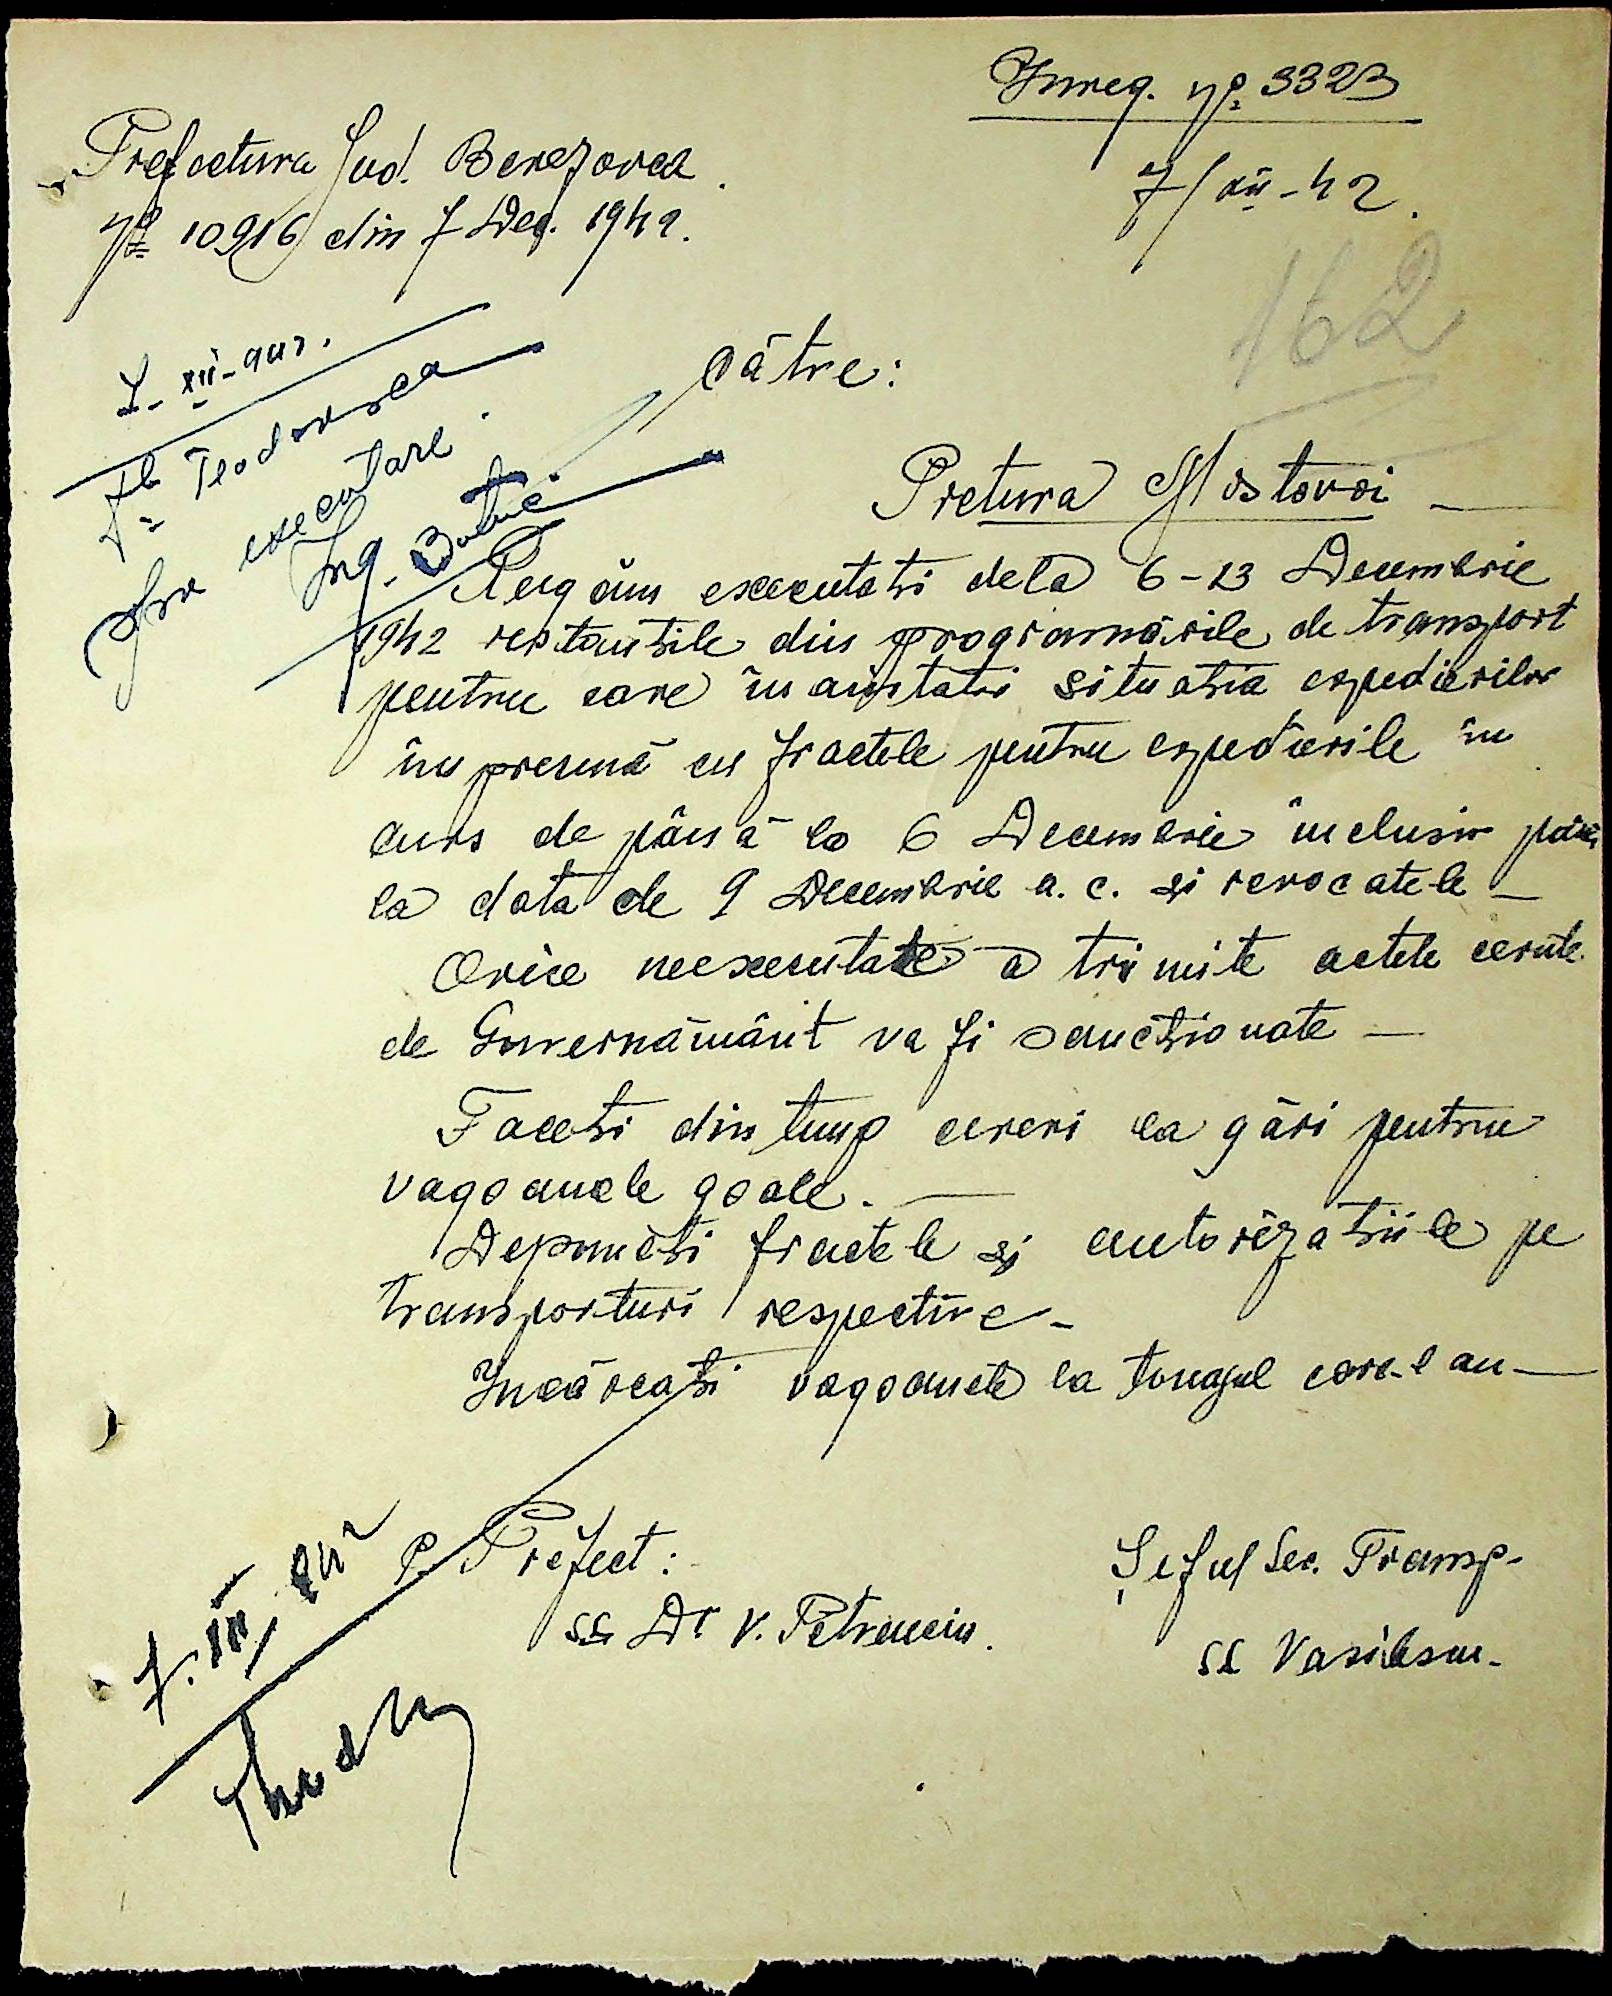 Inreg. No 3323
7/XII-42.
Prefectura Jud. Berezovca.
No 10916 din 7 Dec. 1942.
162
7-XII-942.
Teodorescu
Spre executare.
Ing.
Către:
Pretura Mostovoi —
Rugăm executați dela 6-13 Decembrie
1942 restanțile din programările de transport
pentru care înaintati situația expedierilor
împreună cu fractele pentru expedierile în
curs de până la 6 Decembrie inclusiv până
la data de 9 Decembrie a.c. și revocatele —
Orice neexecutate a trimite actele cerute
de Guvernământ va fi sancționate —
Faceți din timp cereri la gări pentru
vagoanele goale. —
Depuneți fractele și autorizațiile pe
transporturi respective -
Incărcați vagoanele la tonajul care-l au —
P. Prefect:
ss Dr V. Petrenciu.
Șeful Sec. Transp.
ss Vasilescu -
7.XII.942